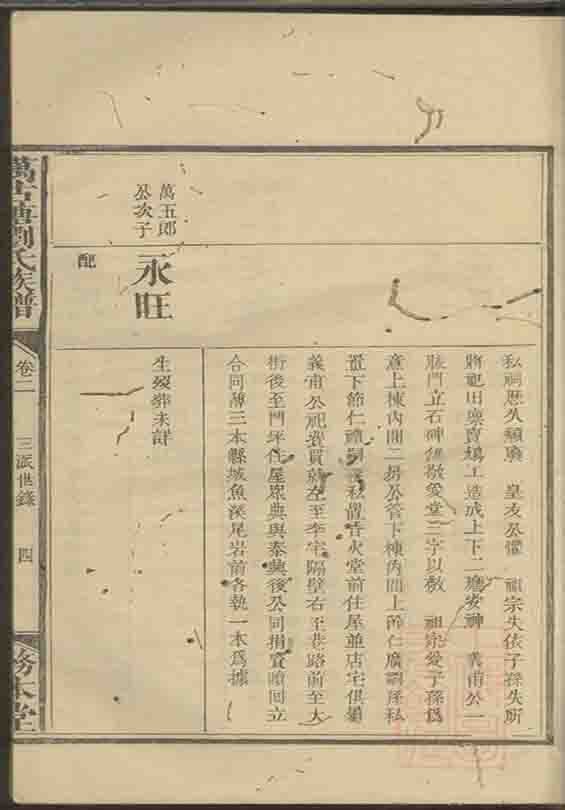 私祠歷久頹壞　皇友公懼　祖宗失依子孫失所
將祀田業賣鳩工造成上下二廳安神　義甫公一
脉門立石碑傳敬愛堂三字以教　祖宗愛子孫為
意上棟內間二房公管下棟內間上節仁廣嗣孫私
置下節仁禮嗣孫私置香火堂前住屋並店宅俱屬
義甫公祀費買蘇左至李宅隔壁右至巷路前至大
街後至門坪住屋原典與泰興後公同捐資贖回立
合同薄三本縣城魚溪尾岩前各執一本為據
萬五郎
公次子
永旺
配
生歿葬未詳
萬古塘劉氏族譜
卷二
三派世錄
四
務本堂